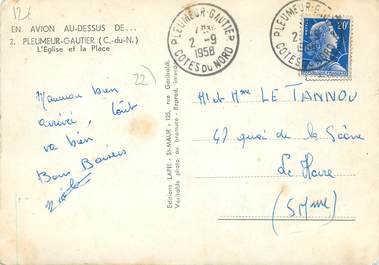 12f
EN AVION AU-DESSUS DE...
2. PLEUMEUR-GAUTIER (C.-du-N.)
L'Eglise et la Place
22
bien
arrivé, tout
va bien
Bons Baisers
Editions LAPIE - St-MAUR - 125, rue Garibaldi.
Véritable photo au bromure - Reprod. interdite
PLEUMEUR-GAUTIER
2 -9
1958
COTES DU NORD
PLEUMEUR-GAUTIER
2
COTES DU NORD
20F
Mr et Mme LE TANNOU
47 quai de la Saône
Le Havre
(S Mme)